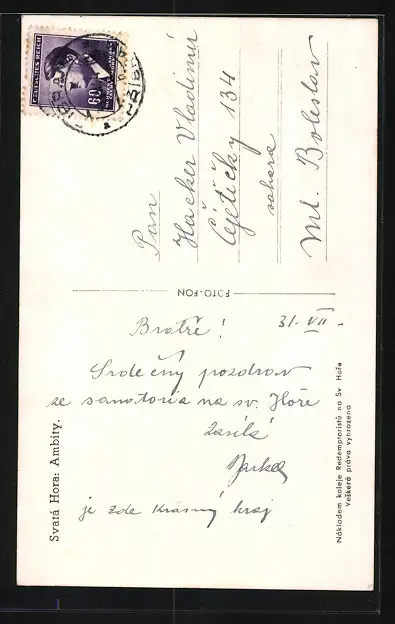 60
Pan
Hacker Vladimír
Čejetičky 134
Ml. Boleslav
FOTO-FON
Bratře! 31. VII.
Srdečný pozdrav
ze sanatoria na sv. Hoře
zasílá
je zde krásný kraj
Svatá Hora: Ambity.
Nákladem koleje Redemptoristů na Sv. Hoře
Veškerá práva vyhrazena